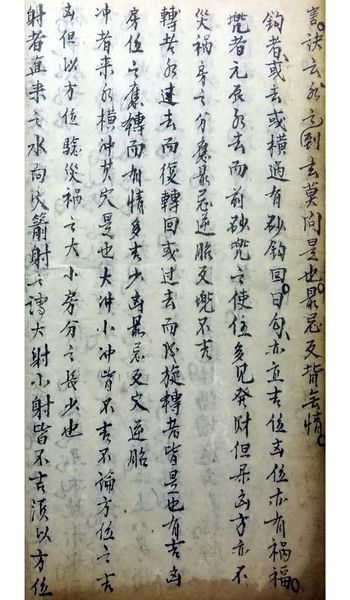 害訣云水之到玄莫问是也最忌反背无情
鈎者或去或横過有砂鈎回曰勾亦宜吉位凶位亦有祸福
兜者元辰水去而前砂兜之使位多见發财但吊凶方亦不
災祸房之分應最忌逆胎反兜不吉
轉者水过去而復轉回或过去而收旋轉者皆是也有吉凶
房位之應轉而有情多吉少凶最忌反穴逆胎
冲者来水横冲其穴是也大冲小冲皆不吉不論方位之吉
凶但以方位驗災祸之大小房分之長少也
射者直来之水向穴箭射之谓大射小射皆不吉須以方位